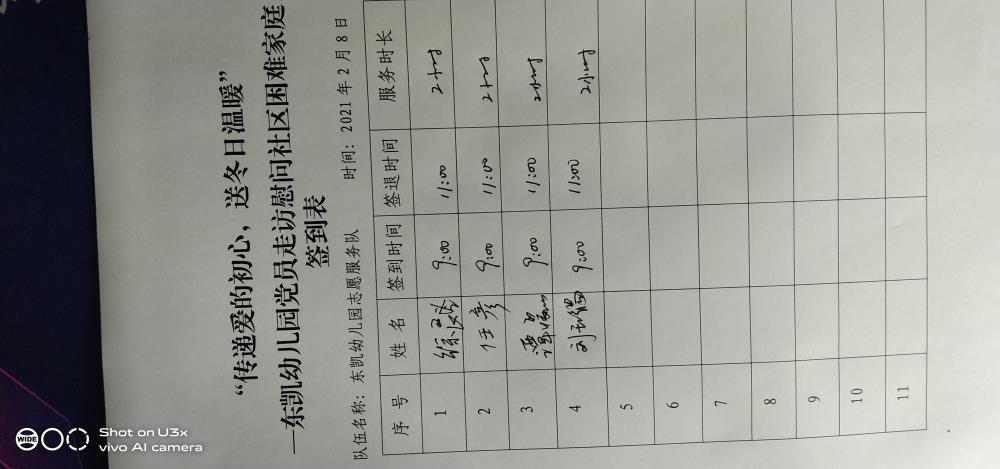 “传递爱的初心，送冬日温暖”
—东凯幼儿园党员走访慰问社区困难家庭
签到表
队伍名称：东凯幼儿园志愿服务队 时间：2021年2月8日
序号 姓名 签到时间 签退时间 服务时长
1 9:00 11:00 2小时
2 任彦 9:00 11:00 2小时
3 9:00 11:00 2小时
4 刘 9:00 11:00 2小时
5
6
7
8
9
10
11
WIDE
Shot on U3x
vivo AI camera